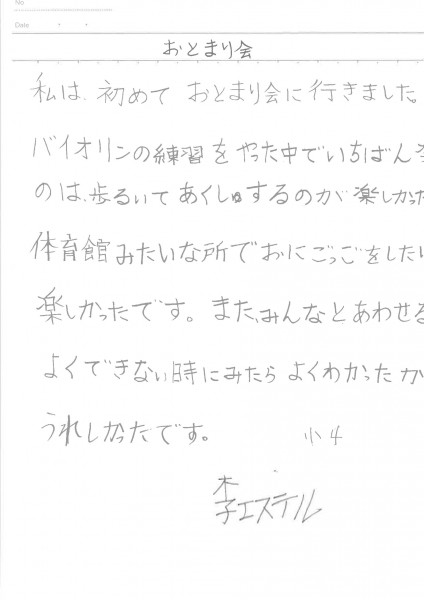 No
Date ・ ・
おとまり会
私は、初めて おとまり会に行きました。
バイオリンの練習をやった中でいちばん
のは、歩るいてあくしゅするのが楽しかった
体育館みたいな所でおにごっごをしたり
楽しかったです。また、みんなとあわせる
よくできない時にみたら よくわかったか
うれしかったです。 小4
李エステル